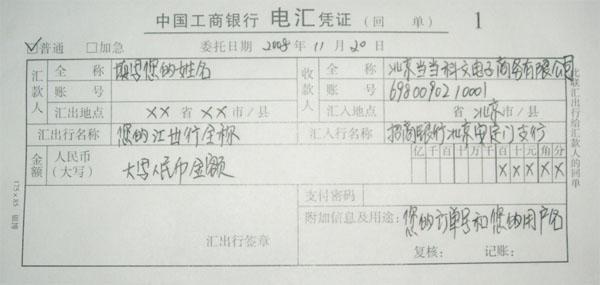 中国工商银行 电汇凭证（回 单） 1
☑普通 □加急 委托日期 2008 年 11 月 20 日
汇款人 全 称 填写您的姓名 收款人 全 称 北京当当科文电子商务有限公司
账 号 账 号 698009021 0001
汇出地点 ×× 省 ×× 市/县 汇入地点 省 北京 市/县
汇出行名称 您的汇出行全称 汇入行名称 招商银行北京安定门支行
金额 人民币（大写） 大写人民币金额 亿 千 百 十 万 千 百 十 元 角 分
× × × × ×
支付密码
附加信息及用途： 您的订单号和您的用户名
汇出行签章 复核： 记账：
此联汇出行给汇款人的回单